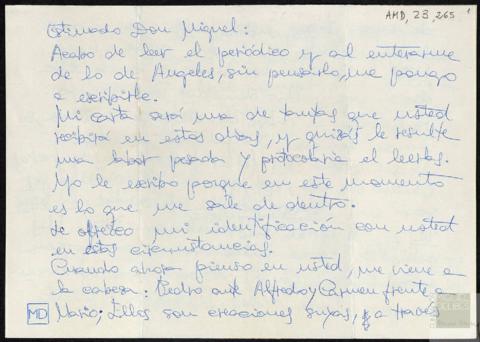 AMD, 23, 265 1
Estimado Don Miguel:
Acabo de leer el periódico y al enterarme
de lo de Angeles, sin pensarlo, me pongo
a escribirle.
Mi carta será una de tantas que usted
recibirá en estos días, y quizás le resulte
una labor pesada y protocolaria el leerlas.
Yo le escribo porque en este momento
es lo que me sale de dentro.
Le ofrezco mi identificación con usted
en estas circunstancias.
Cuando ahora pienso en usted, me viene a
la cabeza: Pedro ante Alfredo y Carmen frente a
Mario; Ellos son creaciones suyas, y a través
MD